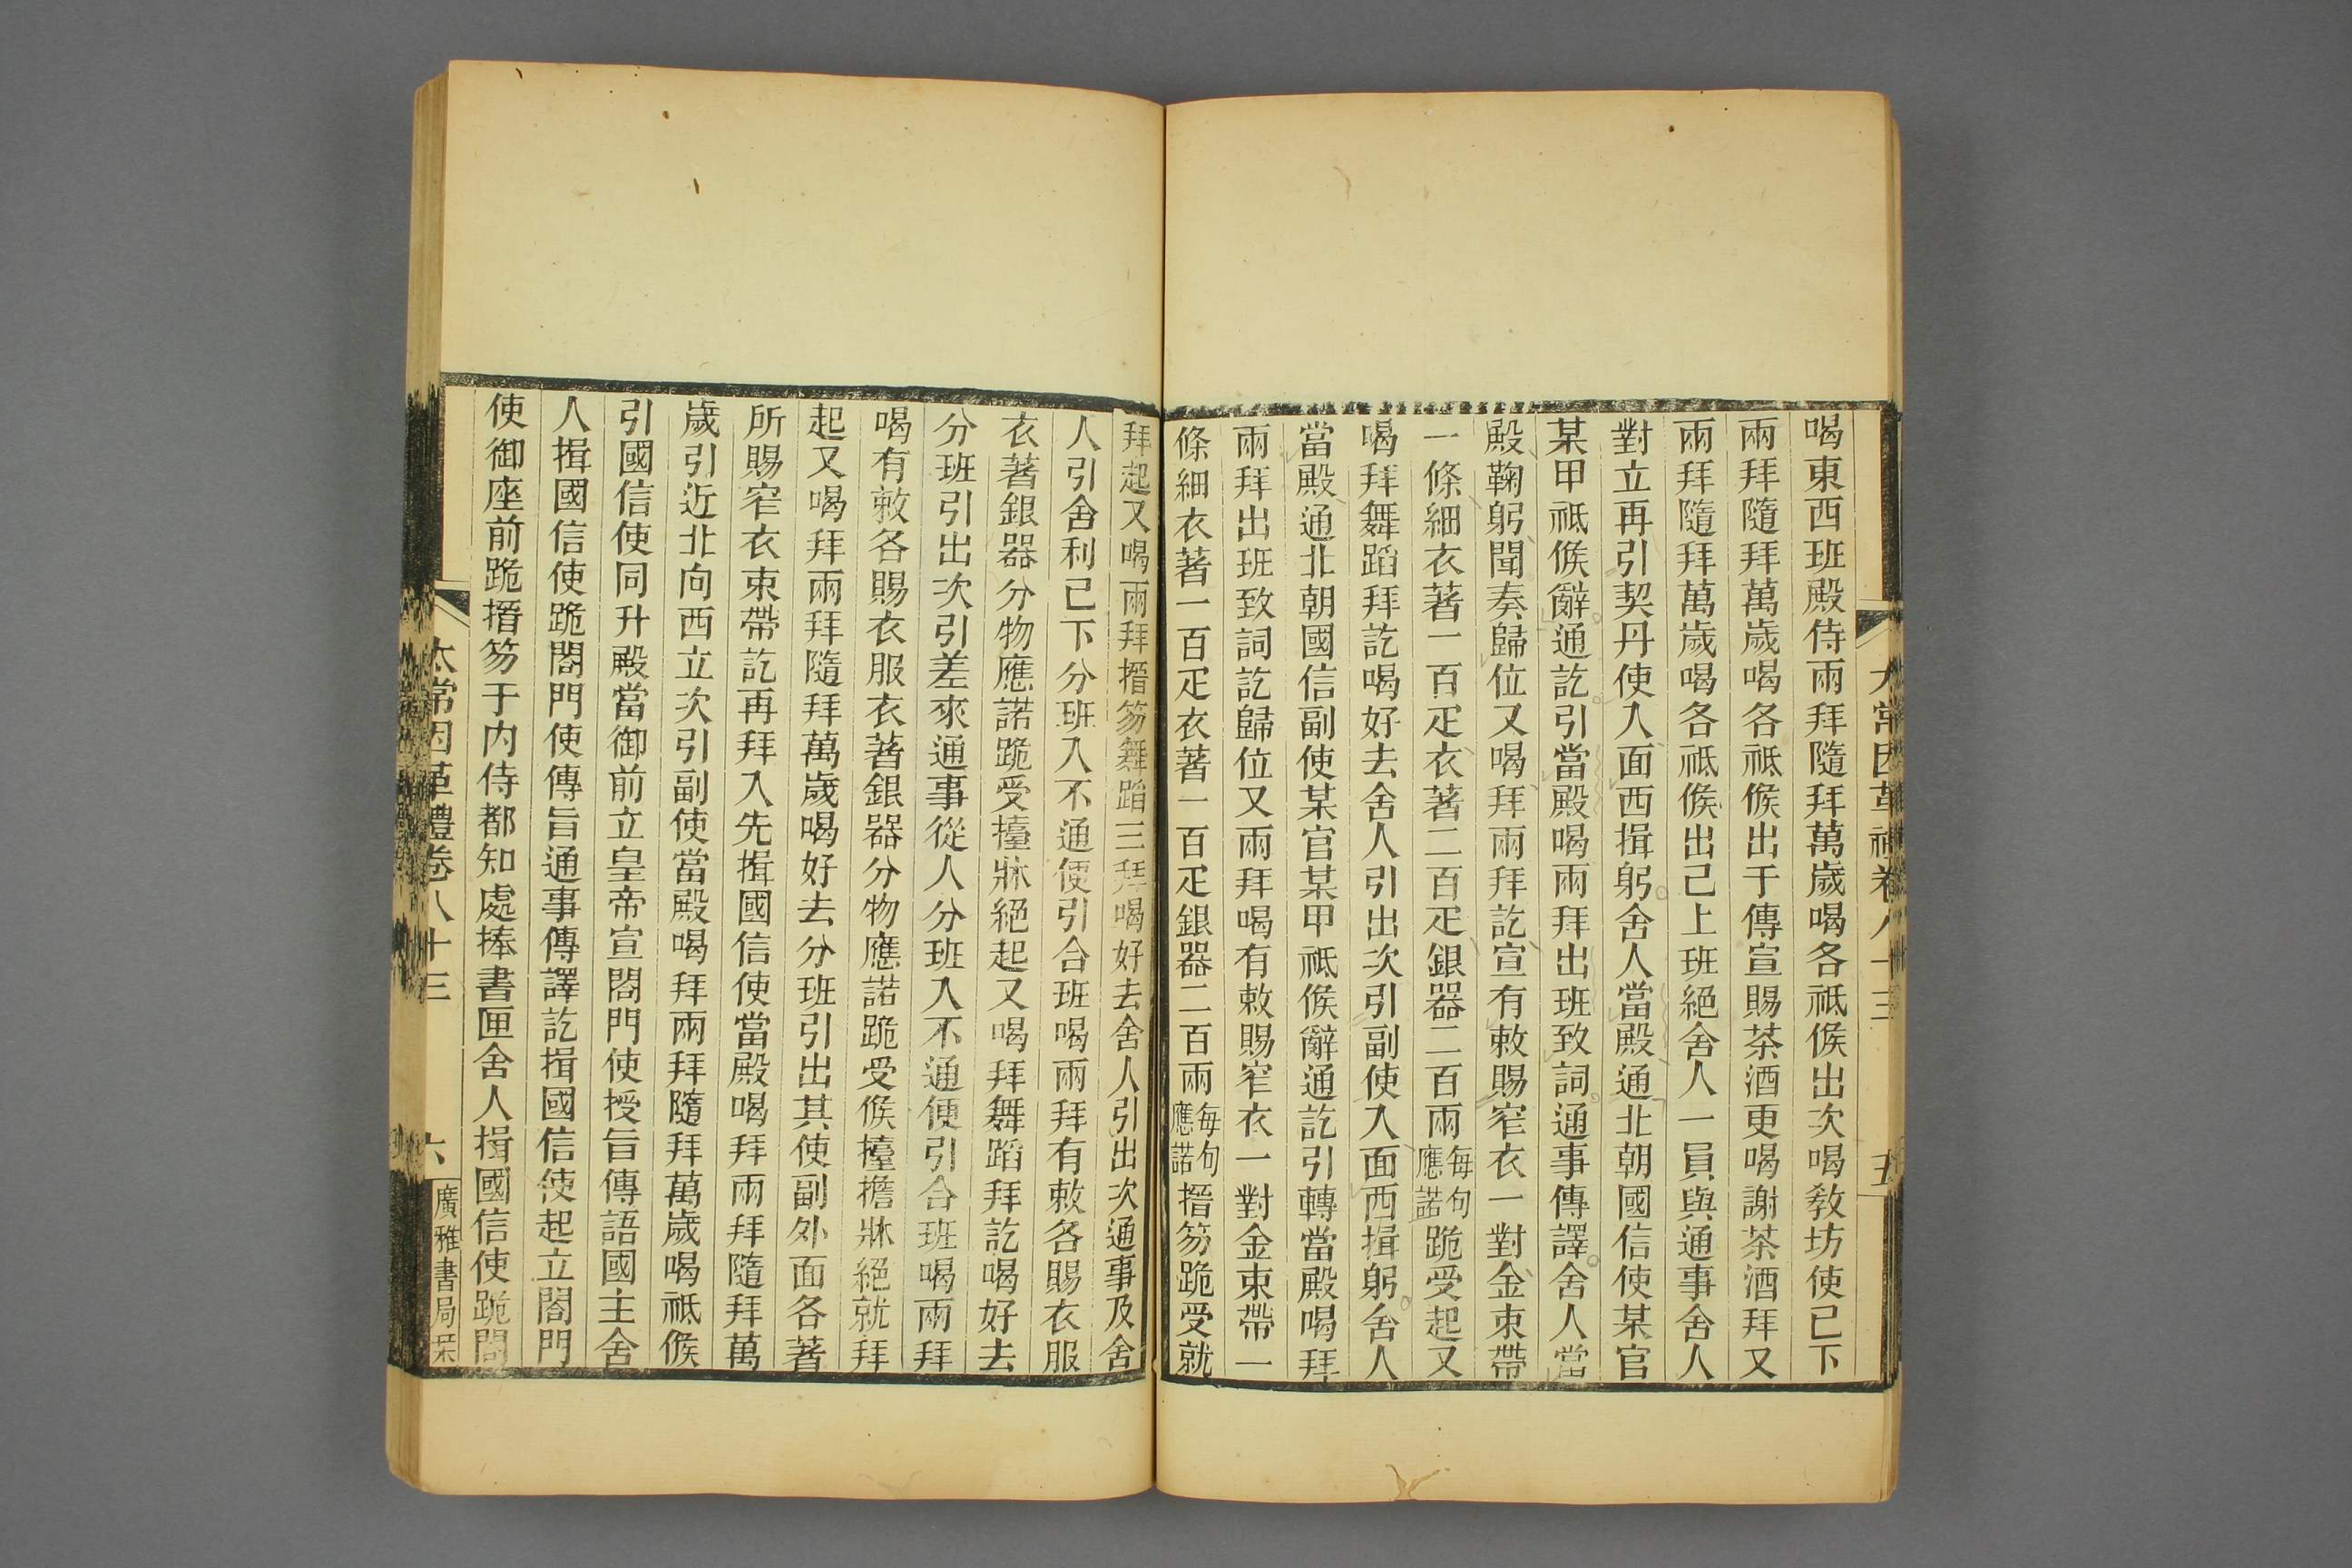 太常因革禮卷八十三
五
喝東西班殿侍兩拜隨拜萬歲喝各祗候出次喝敎坊使已下
兩拜隨拜萬歲喝各祗候出于傳宣賜茶酒更喝謝茶酒拜又
兩拜隨拜萬歲喝各祗候出已上班絕舍人一員與通事舍人
對立再引契丹使入面西揖躬舍人當殿通北朝國信使某官
某甲祗候辭通訖引當殿喝兩拜出班致詞通事傳譯舍人當
殿鞠躬聞奏歸位又喝拜兩拜訖宣有敕賜窄衣一對金束帶
一條細衣著一百疋衣著二百疋銀器二百兩每句應諾跪受起又
喝拜舞蹈拜訖喝好去舍人引出次引副使入面西揖躬舍人
當殿通北朝國信副使某官某甲祗候辭通訖引轉當殿喝拜
兩拜出班致詞訖歸位又兩拜喝有敕賜窄衣一對金束帶一
條細衣著一百疋衣著一百疋銀器二百兩每句應諾搢笏跪受就
拜起又喝兩拜搢笏舞蹈三拜喝好去舍人引出次通事及舍
人引舍利已下分班入不通便引合班喝兩拜有敕各賜衣服
衣著銀器分物應諾跪受擡牀絕起又喝拜舞蹈拜訖喝好去
分班引出次引差來通事從人分班入不通便引合班喝兩拜
喝有敕各賜衣服衣著銀器分物應諾跪受候擡擔牀絕就拜
起又喝拜兩拜隨拜萬歲喝好去分班引出其使副外面各著
所賜窄衣束帶訖再拜入先揖國信使當殿喝拜兩拜隨拜萬
歲引近北向西立次引副使當殿喝拜兩拜隨拜萬歲喝祗候
引國信使同升殿當御前立皇帝宣閤門使授旨傳語國主舍
人揖國信使跪閤門使傳旨通事傳譯訖揖國信使起立閤門
使御座前跪搢笏于內侍都知處捧書匣舍人揖國信使跪閤
太常因革禮卷八十三
六
廣雅書局栞